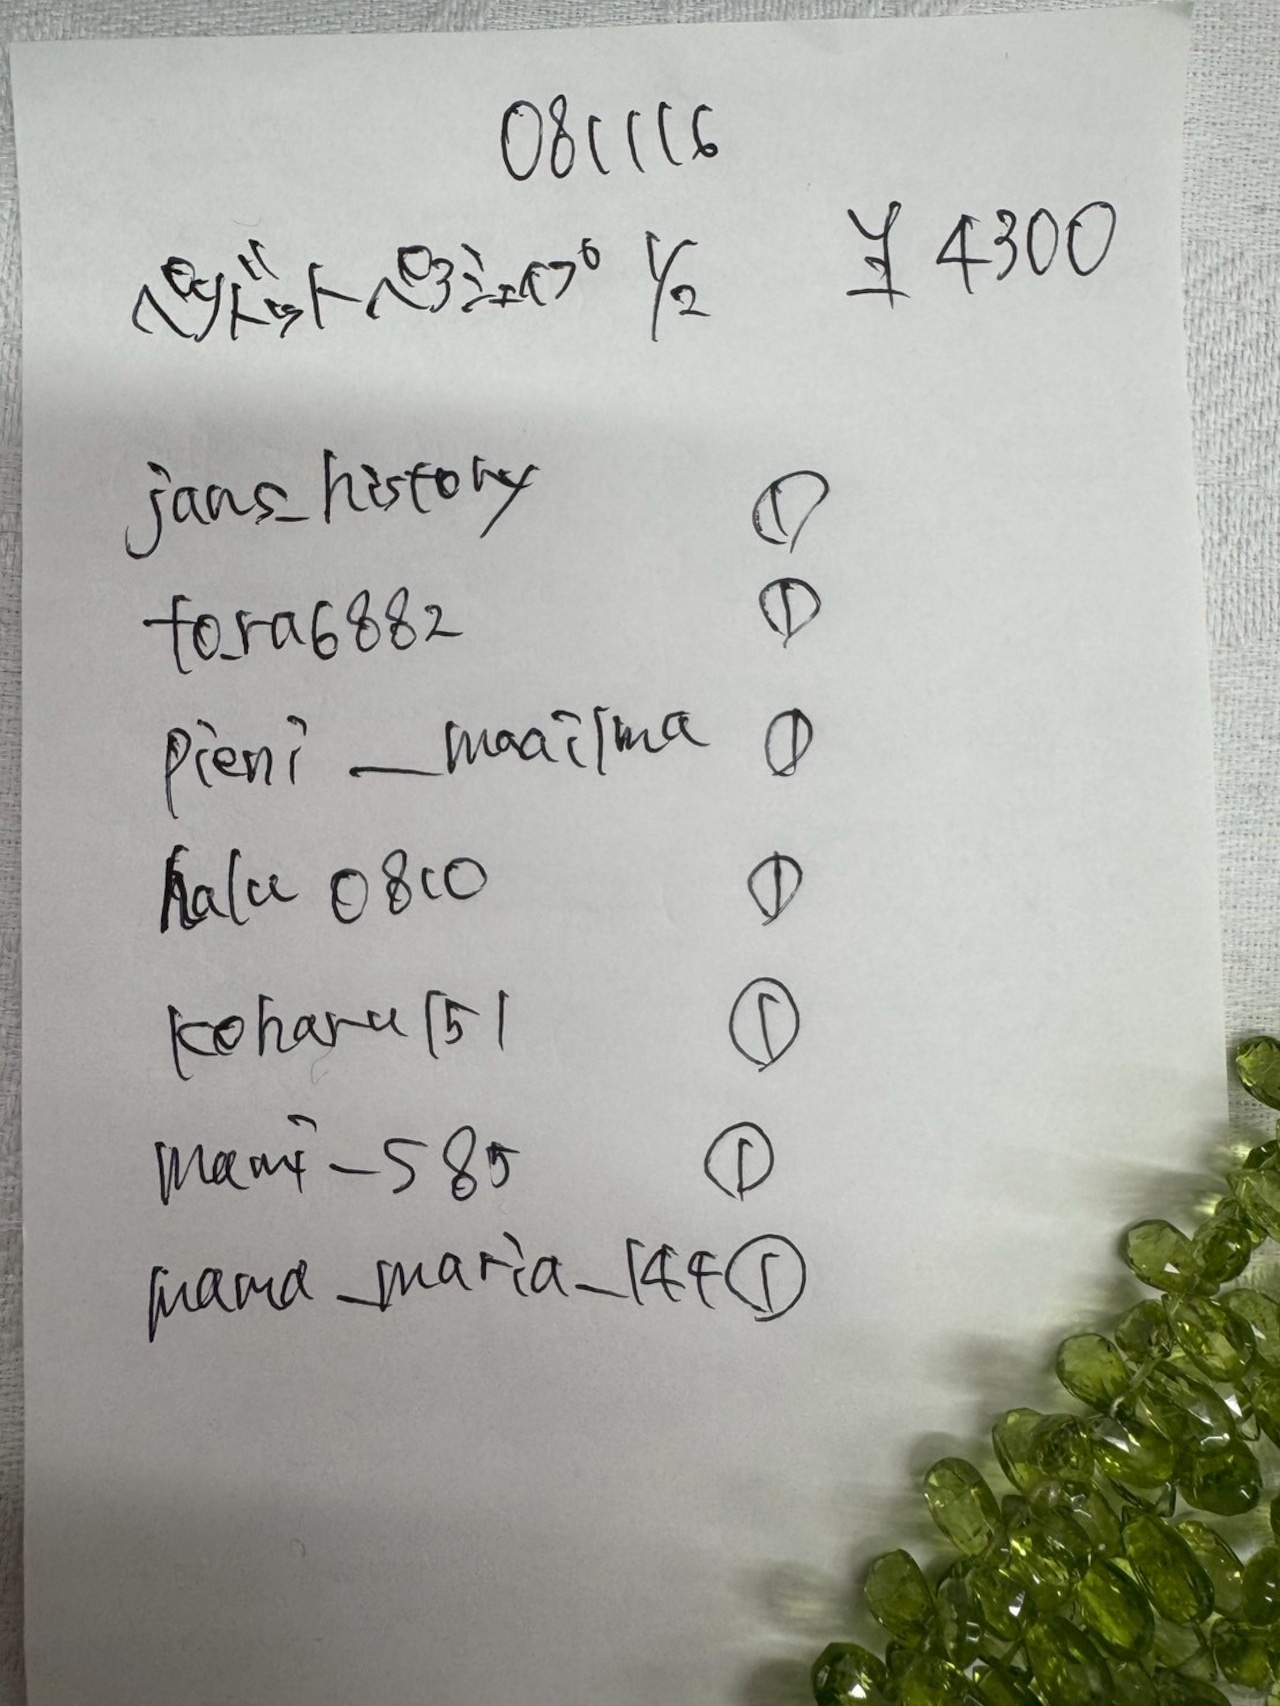 081116
ペリドットペアシェイプ 1/2 ¥4300
jans_history ①
tora6882 ①
pieni _maailma ①
halu 0810 ①
koharu151 ①
mami-585 ①
mama_maria_144 ①